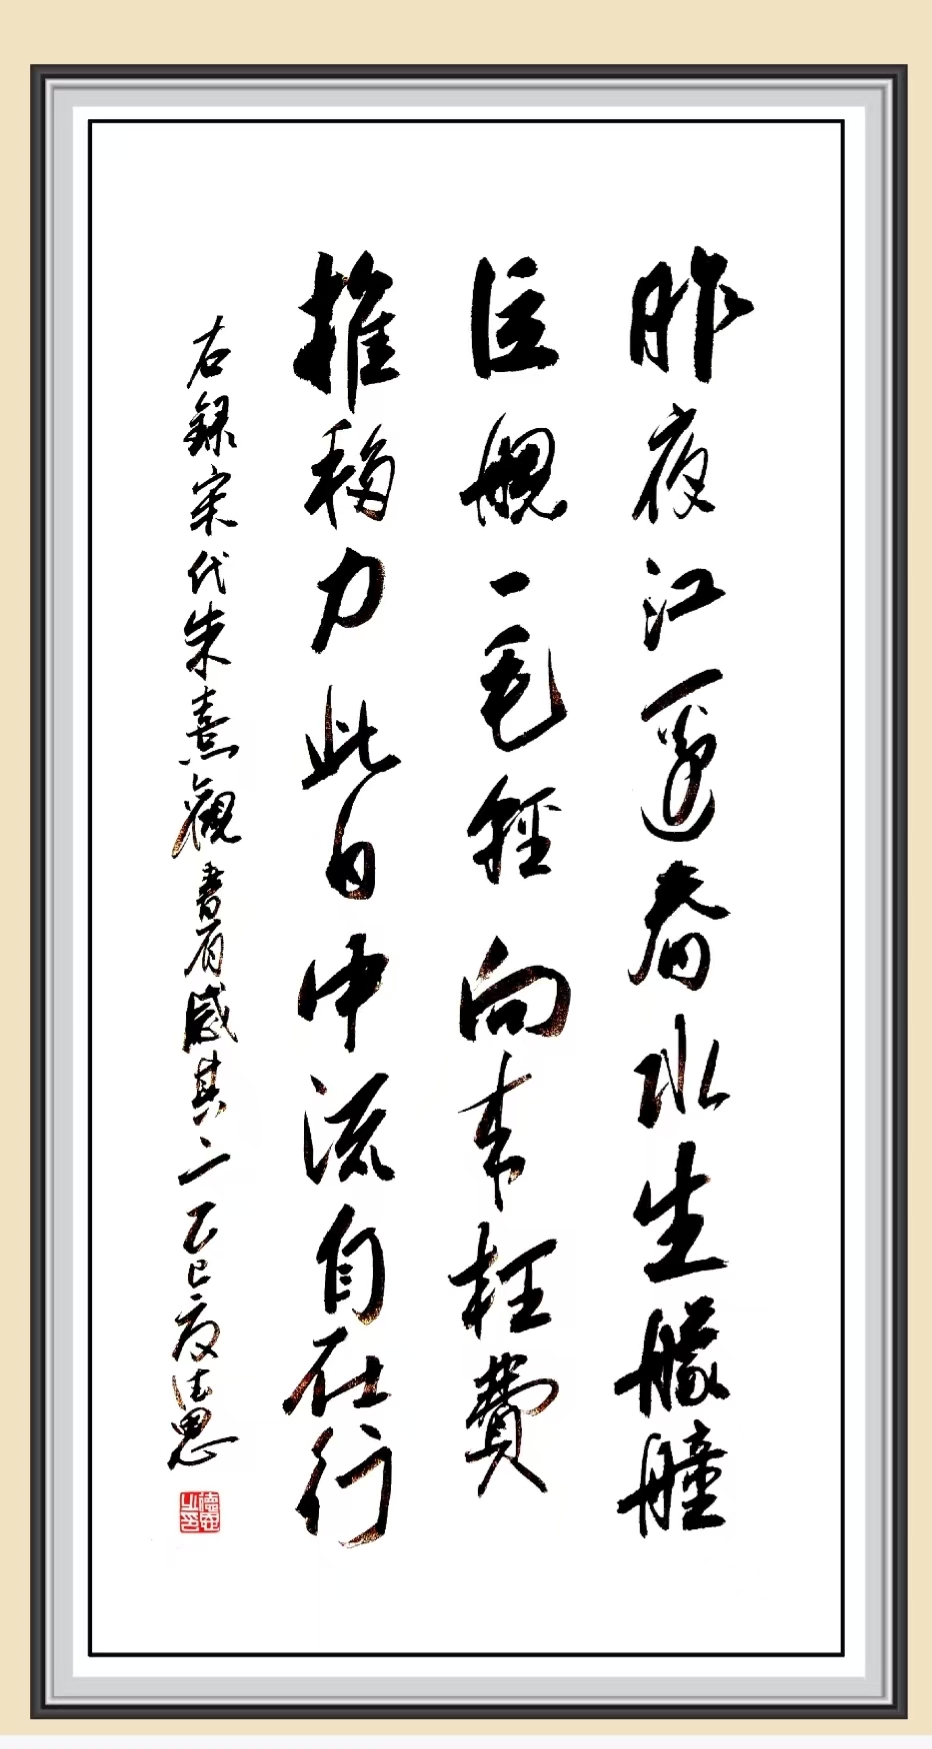 昨夜江邊春水生艨艟
巨舰一毛輕向来枉費
推移力此日中流自在行
右録宋代朱熹觀書有感其二乙巳夏